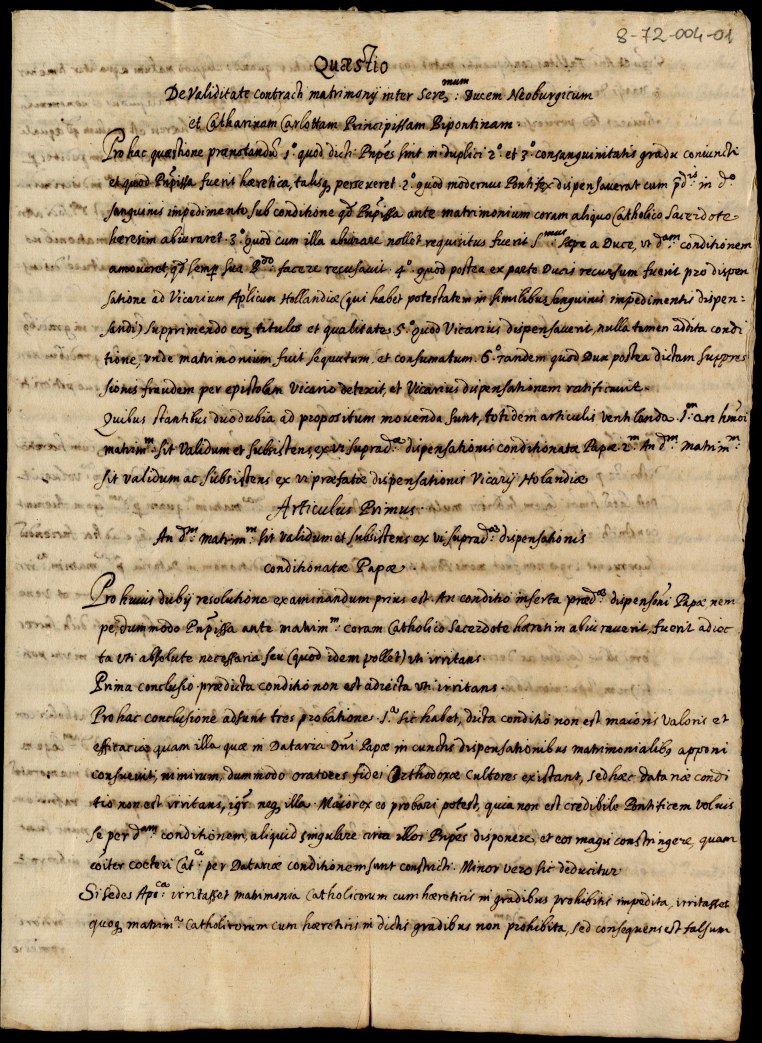 8-72-004-01
Quæstio
De Validitate contracti matrimonij inter Sere.mum: Ducem Neoburgicum
et Catharinam Carlottam Principissam Bipontinam.
Pro hac quæstione prænotandũ 1.° quod dicti Pñpẽs sint in duplici 2.° et 3.° consanguinitatis gradu coniuncti
et quod Pñpissa fuerit hæretica, talisq; perseveret. 2.° quod modernus Pontifex dispensaverat cum pd.is in d.°
sanguinis impedimento sub conditione qđ Pñpissa ante matrimonium coram aliquo Catholico Sacerdote
hæresim abiuraret. 3.° quod cum illa abiurare nollet requisitus fuerit S.mus sæpe a Duce, ut d.am conditionem
amoveret, qđ semp. Sua B.do: facere recusavit. 4.° quod postea ex parte Ducis recursum fuerit pro dispen
satione ad Vicarium Aplicum Hollandiæ (qui habet potestatem in similibus sanguinis impedimentis dispen:
sandi) supprimendo eoꝝ titulos et qualitates. 5.° quod Vicarius dispensaverit, nulla tamen addita condi
tione, unde matrimonium fuit sequutum et consumatum. 6.° tandem quod Dux postea dictam suppres
sionis fraudem per epistolam Vicario detexit, et Vicarius dispensationem ratificavit.
Quibus stantibus duo dubia ad propositum movenda sunt, totidem articulis ventilanda. 1.m: an hmõi
matrim.m: sit validum et subsistens, ex vi suprad.æ: dispensationis conditionatæ Papæ 2.m An d.m: matrim.m:
sit validum ac subsistens ex vi præfatæ dispensationis Vicarij Holandiæ
Articulus Primus.
An d.m: matrim.m: sit validum et subsistens ex vi suprad.æ: dispensationis
conditionatæ Papæ.
Pro huius dubij resolutione examinandum prius est. An conditio inserta præd.æ: dispensõni Papæ nem
pe, dummodo Pñpissa ante matrim.m: coram Catholico Sacerdote hæresim abiuraverit, fuerit adiec
ta uti absolute necessaria seu (quod idem pollet) uti irritans.
Prima conclusio. prædicta conditio non est adiecta uti irritans.
Pro hac conclusione adsunt tres probationes. 1.a sic habet, dicta conditio non est maioris valoris et
efficaciæ quam illa quæ in Dataria Dñi Papæ in cunctis dispensationibus matrimonialibꝫ apponi
consuevit, nimirum, dummodo oratores fidei Orthodoxæ Cultores existant, sed hæc datariæ condi
tio non est irritans, igr̃ neq; illa. Maior ex eo probari potest, quia non est credibile Pontificem voluis
se per d.am conditionem, aliquid singulare circa illos Pñpẽs disponere, et eos magis constringere, quam
coiter cæteri Cat.ci per Datariæ conditionem sunt constricti. Minor vero sic deducitur
Si sedes Apo.ca: irritasset matrimonia Catholicorum cum hæreticis in gradibus prohibitis impedita, irritasset
quoq; matrim.a: Catholicorum cum hæreticis in dictis gradibus non prohibita, sed consequens est falsum